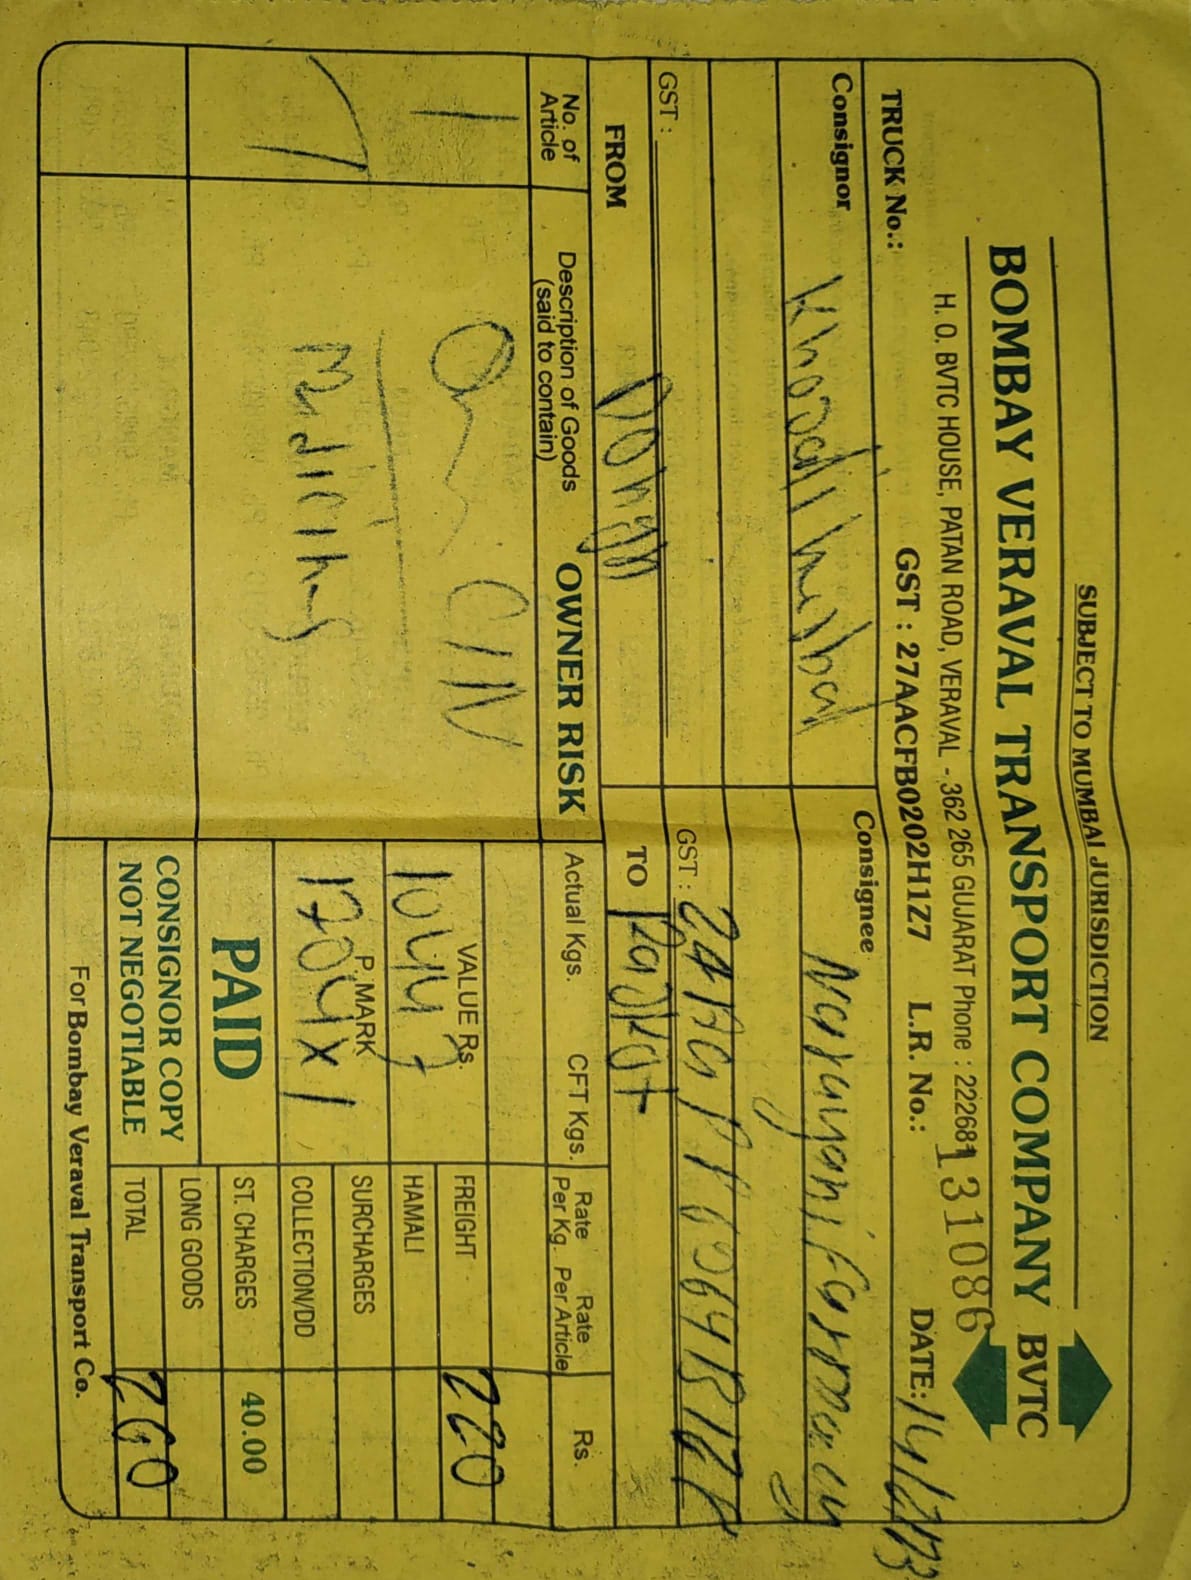 SUBJECT TO MUMBAI JURISDICTION
BOMBAY VERAVAL TRANSPORT COMPANY BVTC
H. O. BVTC HOUSE, PATAN ROAD, VERAVAL - 362 265 GUJARAT Phone : 222681
TRUCK No.: GST : 27AACFB0202H1Z7 L.R. No.: 131086 DATE:
Consignor Consignee
GST : GST :
FROM TO Rajkot
No. of Article Description of Goods (said to contain) OWNER RISK Actual Kgs. CFT Kgs. Rate Per Kg. Rate Per Article Rs.
1 CIN
VALUE Rs. FREIGHT 220
10447 HAMALI
P. MARK SURCHARGES
1204x1 COLLECTION/DD
PAID ST. CHARGES 40.00
LONG GOODS
CONSIGNOR COPY
NOT NEGOTIABLE TOTAL 260
For Bombay Veraval Transport Co.